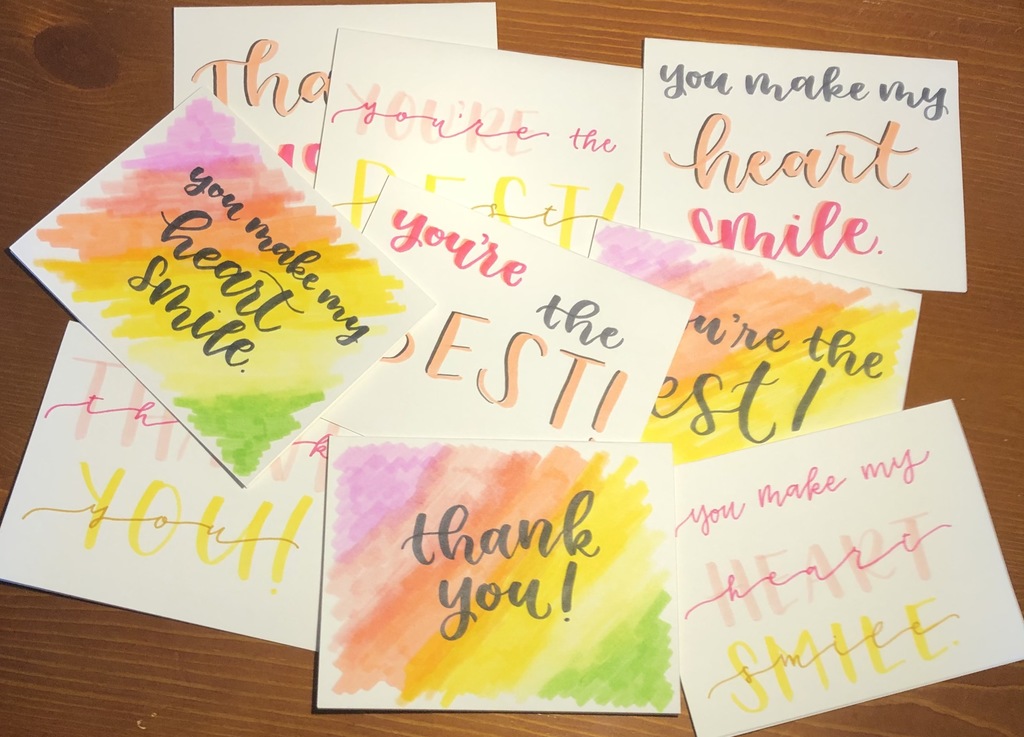 Tha
YOU'RE you're the
BEST! st
you make my
heart
smile.
you make my
heart
smile.
you're
the
BEST!
u're the
est!
TH th k
YOU! you
thank
you!
you make my
HEART heart
SMILE. smile